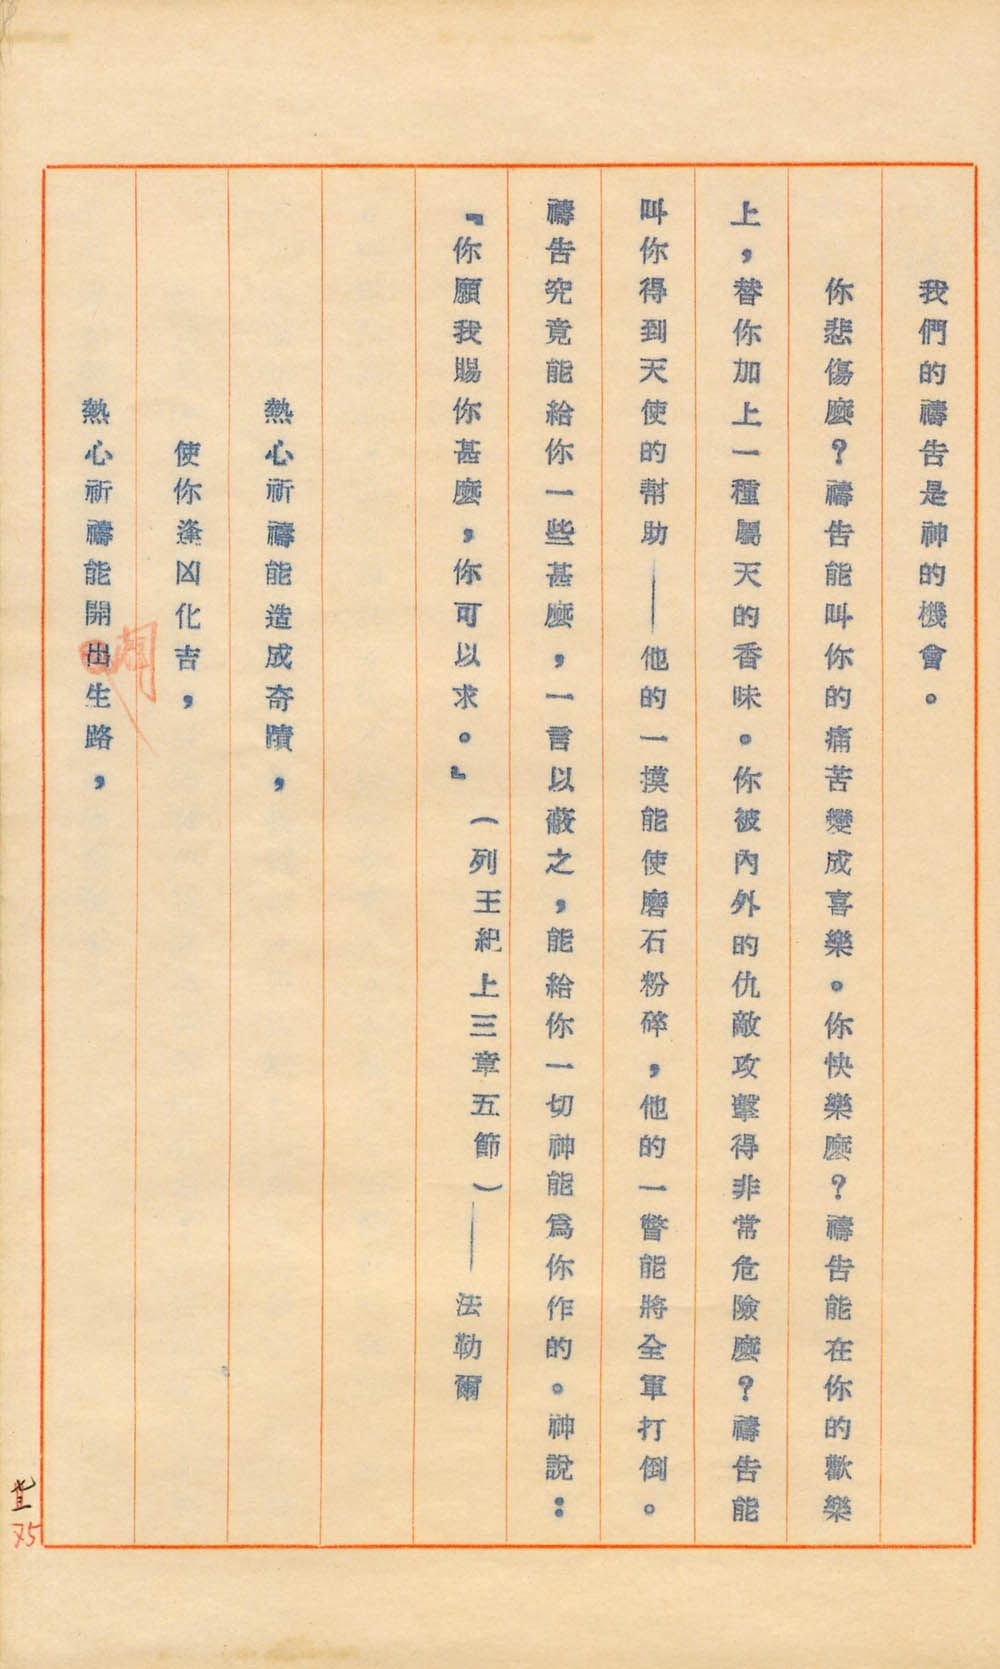 我們的禱告是神的機會。
你悲傷麼?禱告能叫你的痛苦變成喜樂。你快樂麼?禱告能在你的歡樂
上,替你加上一種屬天的香味。你被內外的仇敵攻擊得非常危險麼?禱告能
叫你得到天使的幫助——他的一摸能使磨石粉碎,他的一瞥能將全軍打倒。
禱告究竟能給你一些甚麼,一言以蔽之,能給你一切神能爲你作的。神說:
『你願我賜你甚麼,你可以求。』(列王紀上三章五節)——法勒爾
熱心祈禱能造成奇蹟,
使你逢凶化吉,
熱心祈禱能開出生路,
開
75